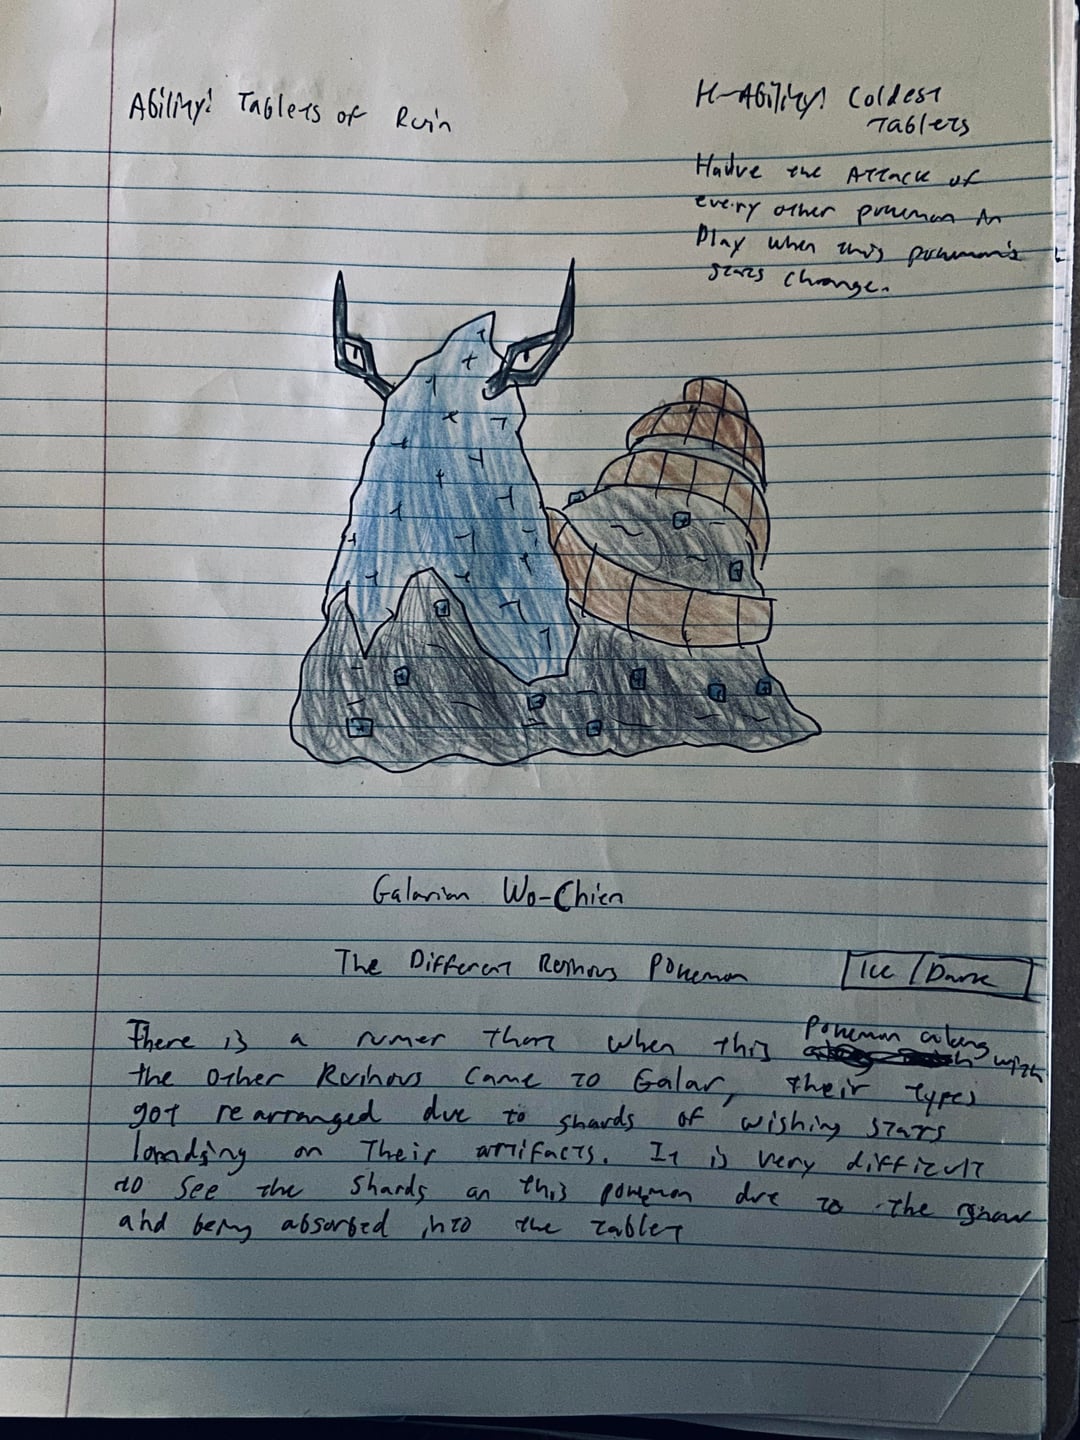 Ability: Tablets of Ruin
H-Ability: Coldest
Tablets
Halve the Attack of
every other pokemon in
Play when this pokemon's
stats change.
Galarian Wo-Chien
The Different Ruinous Pokemon
Ice/Dark
There is a rumer that when this Pokemon along with
the other Ruinous came to Galar, their types
got rearranged due to shards of wishing stars
landing on Their artifacts. It is very difficult
to see the shards on this pokemon due to the snow
and being absorbed into the tablet